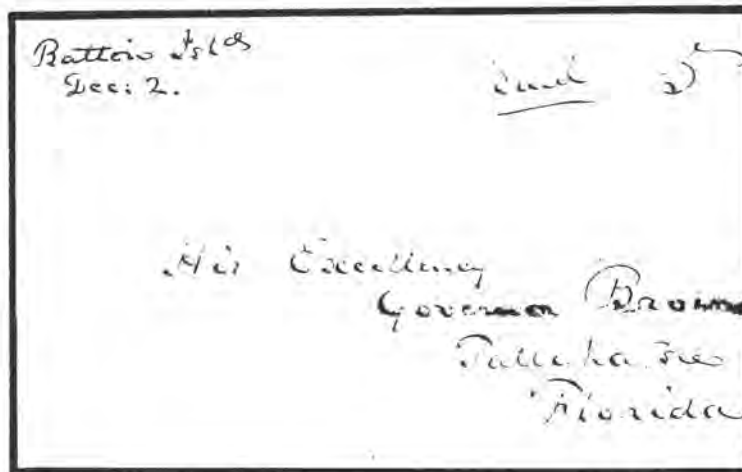 Battoin Islds
Dec: 2.
5
His Excellency
Governor Brown
Tallahassee
Florida